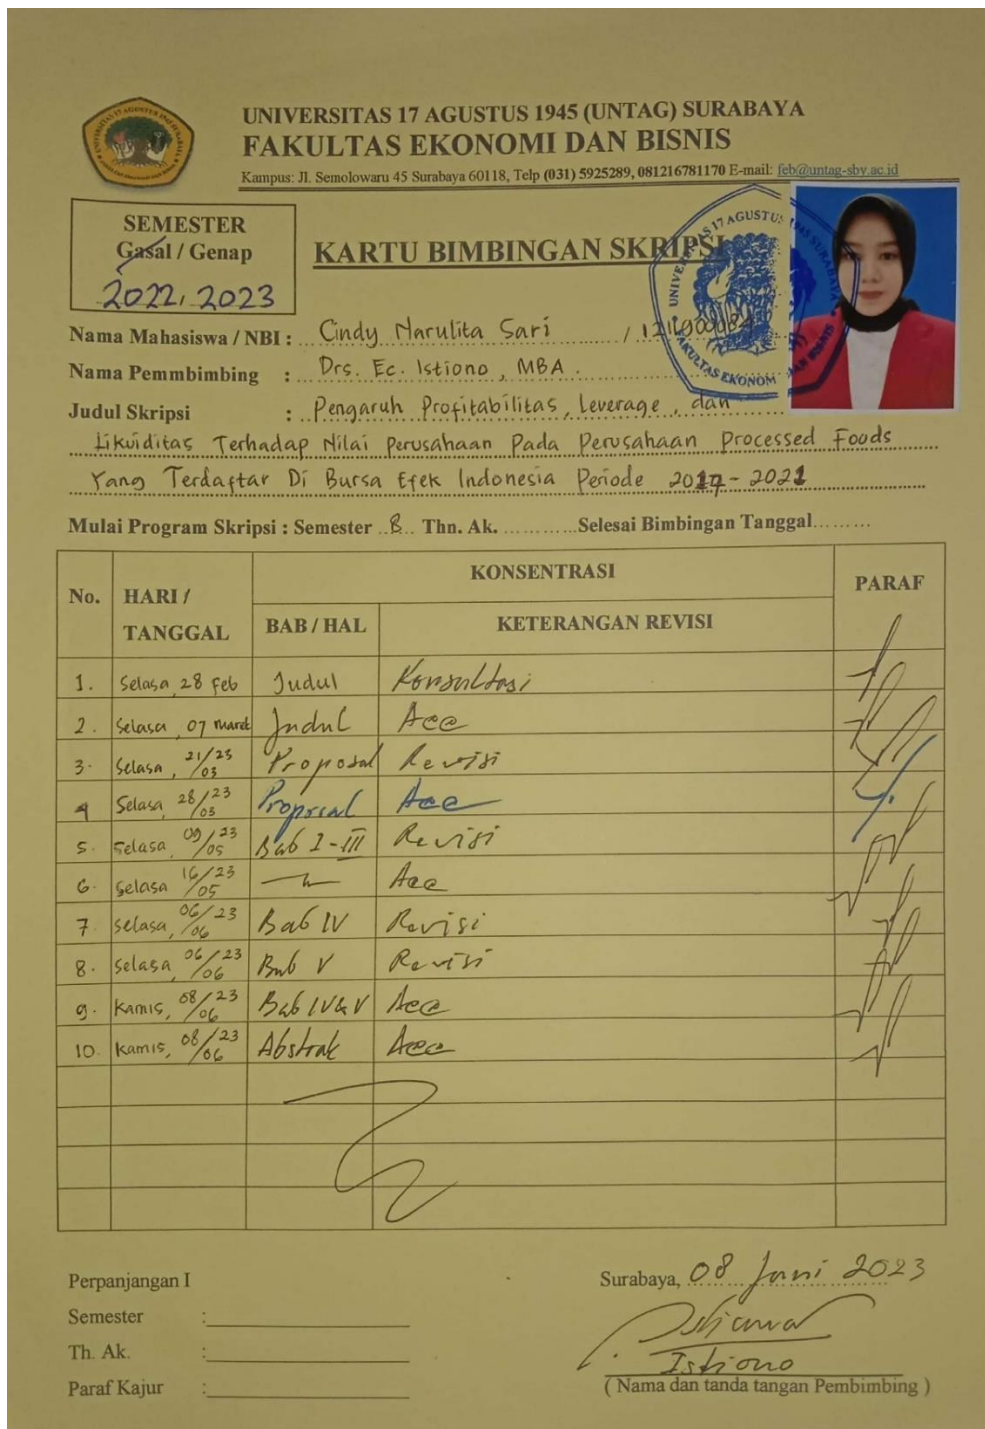 UNIVERSITAS 17 AGUSTUS 1945 (UNTAG) SURABAYA
FAKULTAS EKONOMI DAN BISNIS
Kampus: Jl. Semolowaru 45 Surabaya 60118, Telp (031) 5925289, 081216781170 E-mail: feb@untag-sby.ac.id
SEMESTER
Gasal / Genap
2022, 2023
KARTU BIMBINGAN SKRIPSI
Nama Mahasiswa / NBI : Cindy Marulita Sari /
Nama Pemmbimbing : Drs. Ec. Istiono, MBA.
Judul Skripsi : Pengaruh Profitabilitas, Leverage, dan
Likuiditas Terhadap Nilai Perusahaan Pada Perusahaan Processed Foods
Yang Terdaftar Di Bursa Efek Indonesia Periode 2017 - 2021
Mulai Program Skripsi : Semester 8 Thn. Ak. ............Selesai Bimbingan Tanggal.........
No. HARI / TANGGAL KONSENTRASI PARAF
BAB / HAL KETERANGAN REVISI
1. Selasa, 28 Feb Judul Konsultasi
2. Selasa, 07 Maret Judul Acc
3. Selasa, 21/23 /03 Proposal Revisi
4 Selasa, 28/23 /03 Proposal Acc
5. Selasa, 09/23 /05 Bab I-III Revisi
6. Selasa 16/23 /05 Acc
7. Selasa, 06/23 /06 Bab IV Revisi
8. Selasa, 06/23 /06 Bab V Revisi
9. Kamis, 08/23 /06 Bab IV & V Acc
10. Kamis, 08/23 /06 Abstrak Acc
Perpanjangan I
Semester :
Th. Ak. :
Paraf Kajur :
Surabaya, 08 Juni 2023
Istiono
( Nama dan tanda tangan Pembimbing )